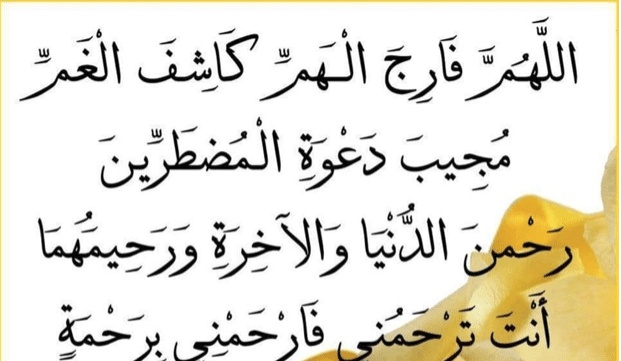 اللَّهُمَّ فَارِجَ الْهَمِّ كَاشِفَ الْغَمِّ
مُجِيبَ دَعْوَةِ الْمُضطَرِّينَ
رَحْمنَ الدُّنْيَا وَالآخِرَةِ وَرَحِيمَهُمَا
أَنْتَ تَرْحَمُنِي فَارْحَمْنِي بِرَحْمَةٍ